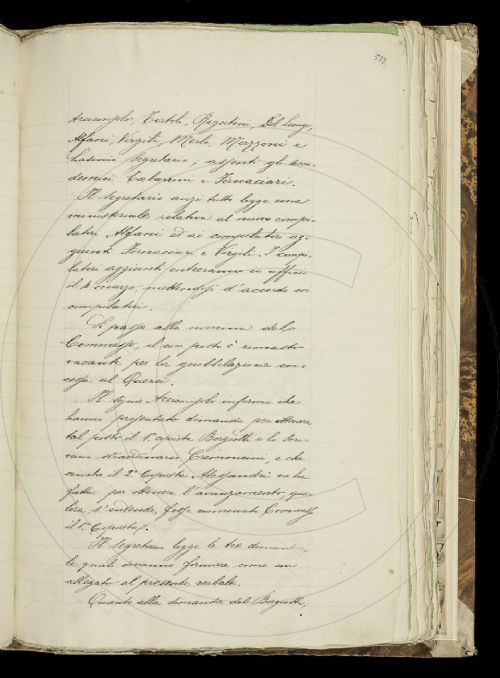 577.
Arcangeli, Tortoli, Rigutini, Del Lungo,
Alfani, Virgili, Merlo, Mazzoni e
segretario; assenti gli Acca-
demici Tabarrini e Fornaciari.
Il segretario anzi tutto legge una
ministeriale relativa al nuovo compi-
latore Alfani ed ai compilatori ag-
giunti Fornaciari e Virgili. I compi-
latori aggiunti entreranno in ufficio
il 1° marzo, mettendosi d'accordo coi
compilatori.
Si passa alla nomina del
Commesso, il cui posto è rimasto
vacante per la giubbilazione con-
cessa al Querci.
Il signor Arciconsolo informa che
hanno presentato domanda per ottenere
tal posto il 1° copista Borgiotti e lo scri-
vano straordinario Cremoncini e che
anche il 2° Copista Alessandri ne ha
fatta per ottenere l'avanzamento, qua-
lora, s'intende, fosse nominato Commesso
il 1° Copista.
Il segretario legge le tre domande,
le quali dovranno formare come un
allegato al presente verbale.
Quanto alla domanda del Borgiotti,